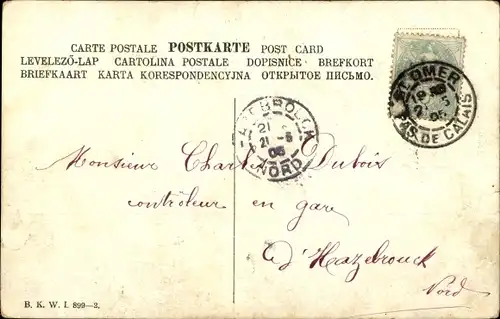 CARTE POSTALE POSTKARTE POST CARD
LEVELEZŐ-LAP CARTOLINA POSTALE DOPISNICE BREFKORT
BRIEFKAART KARTA KORESPONDENCYJNA ОТКРЫТОЕ ПИСЬМО.
ST OMER
PAS DE CALAIS
HAZEBROUCK
21
NORD
Monsieur Charles Dubois
contrôleur en gare
d'Hazebrouck
Nord
B. K. W. I. 899-3.